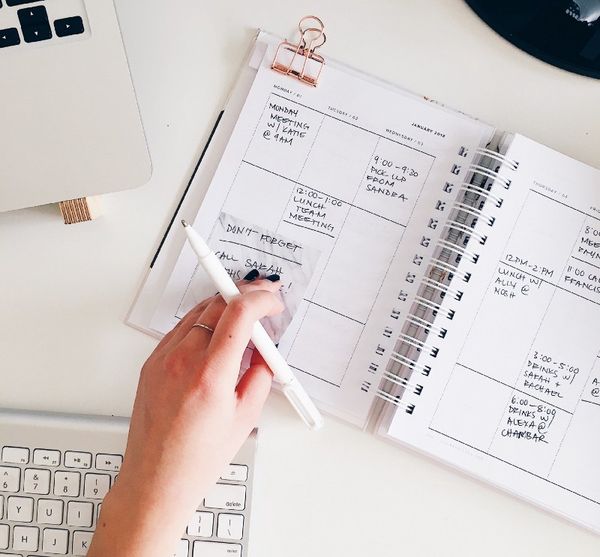 JANUARY 2018
MONDAY / 01
TUESDAY / 02
WEDNESDAY / 03
MONDAY
MEETING
W/ KATIE
@ 9AM
9:00-9:30
PICK UP
FROM
SANDRA
12:00-1:00
LUNCH
TEAM
MEETING
DON'T FORGET
CALL SARAH
THIS
!
THURSDAY / 04
12PM-2PM
LUNCH W/
ALLY @
NOSH
3:00-5:00
DRINKS W/
SARAH +
RACHAEL
6:00-8:00
DRINKS W/
ALEXA @
CHAMBAR
11:00